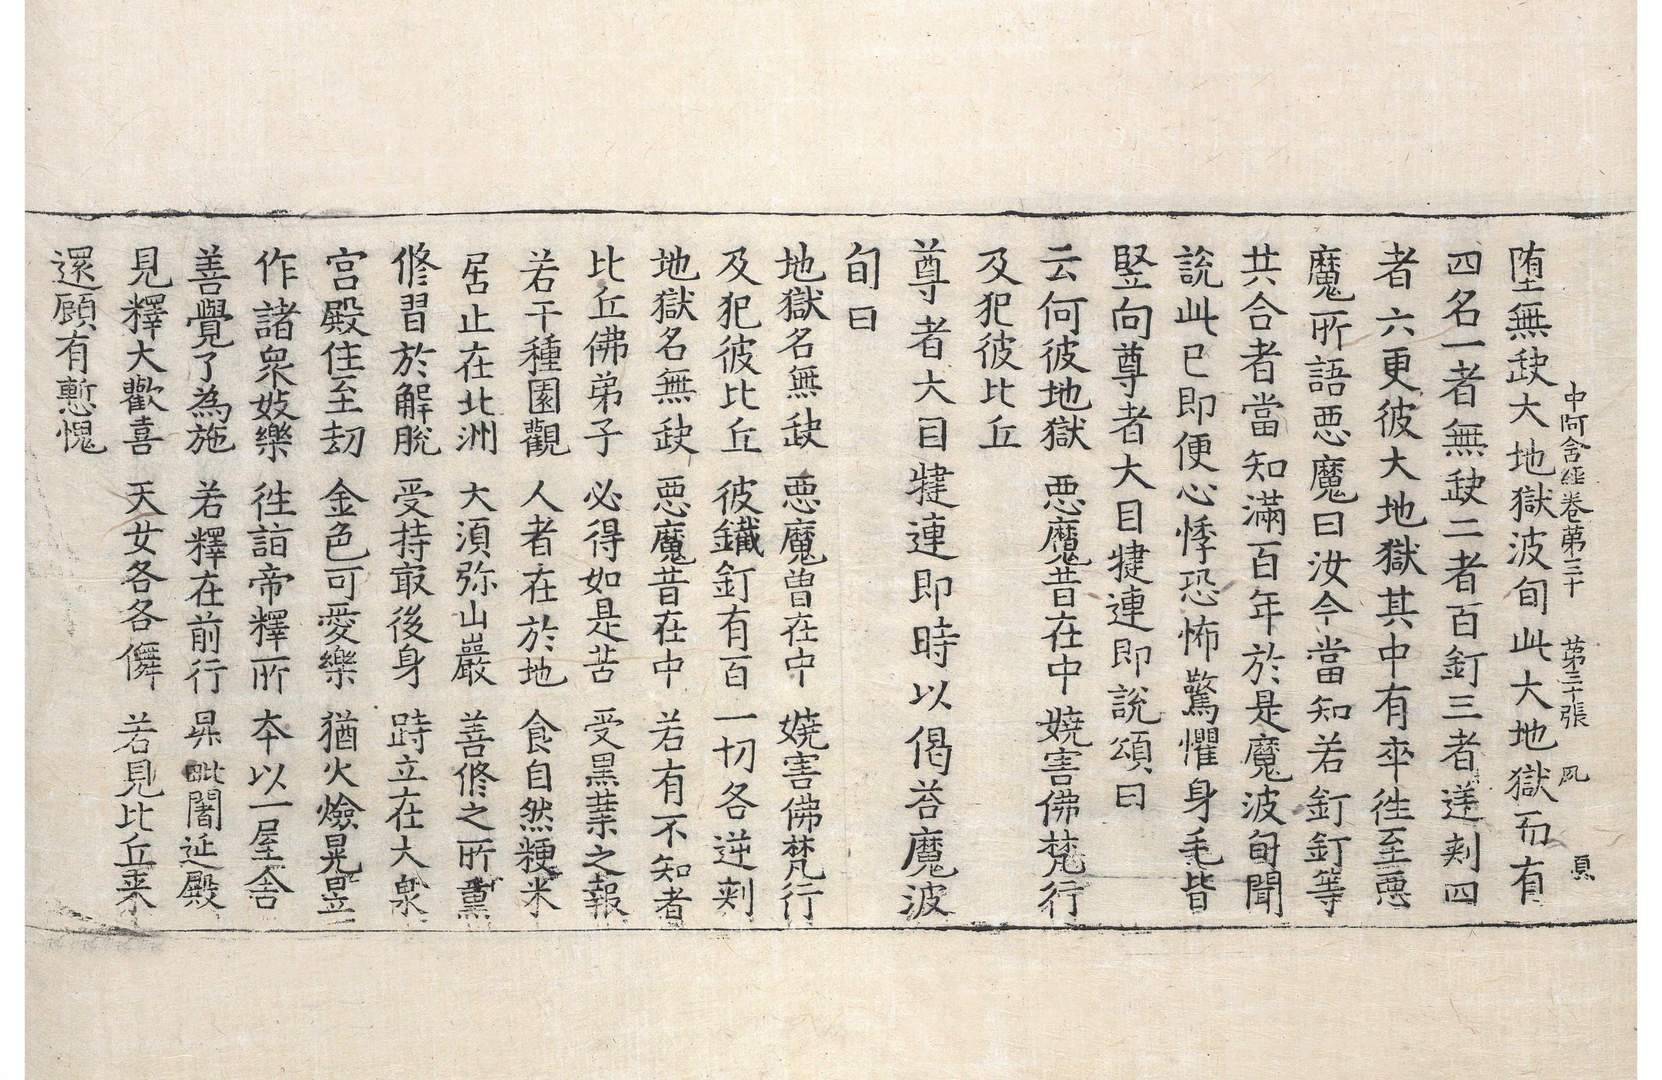 中阿含經卷第三十 第三十張 夙 真
堕無缺大地獄波旬此大地獄而有
四名一者無缺二者百釘三者逆刺四
者六更彼大地獄其中有卒徃至悪
魔所語悪魔曰汝今當知若釘釘等
共合者當知滿百年於是魔波旬聞
說此已即便心悸恐怖驚懼身毛皆
竪向尊者大目揵連即說頌曰
云何彼地獄 悪魔昔在中 嬈害佛梵行
及犯彼比丘
尊者大目揵連即時以偈荅魔波
旬曰
地獄名無缺 悪魔曽在中 嬈害佛梵行
及犯彼比丘 彼鐵釘有百 一切各逆刺
地獄名無缺 悪魔昔在中 若有不知者
比丘佛弟子 必得如是苦 受黒業之報
若干種園觀 人者在於地 食自然粳米
居止在北洲 大湏弥山巖 善修之所熏
修習於解脫 受持㝡後身 跱立在大泉
宫殿住至劫 金色可愛樂 猶火燄晃昱
作諸衆妓樂 徃詣帝釋所 本以一屋舎
善覺了為施 若釋在前行 昇毗闍延殿
見釋大歡喜 天女各各儛 若見比丘来
還顧有慙愧